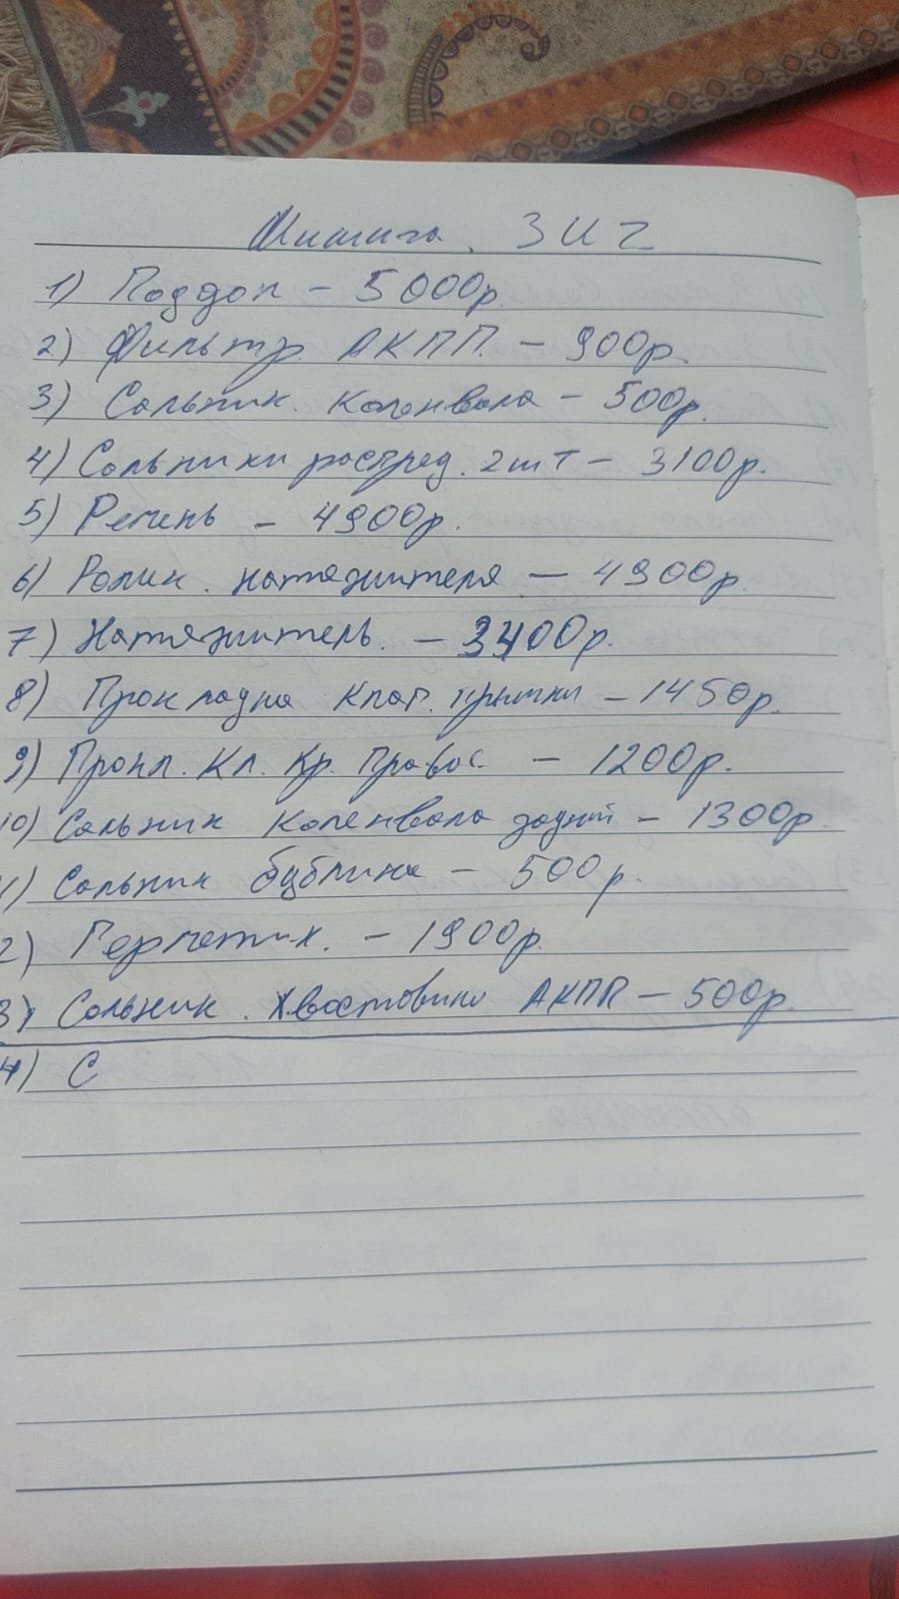 З И Ч
1) Поддон - 5000р.
2) Фильтр АКПП. - 900р.
3) Сальник. Коленвала - 500р.
4) Сольники распред. 2шт - 3100р.
5) Ремень - 4900р.
6) Ролик. натяжителя - 4900р.
7) Натяжитель. - 3400р.
8) Прокладка Клап. крышки - 1450р.
9) Прокл. Кл. Кр. Правос. - 1200р.
10) Сальник Коленвала задний - 1300р.
1) Сальник бублика - 500р.
2) Герметик. - 1900р.
3) Сольник. Хвостовика АКПП - 500р.
4) С